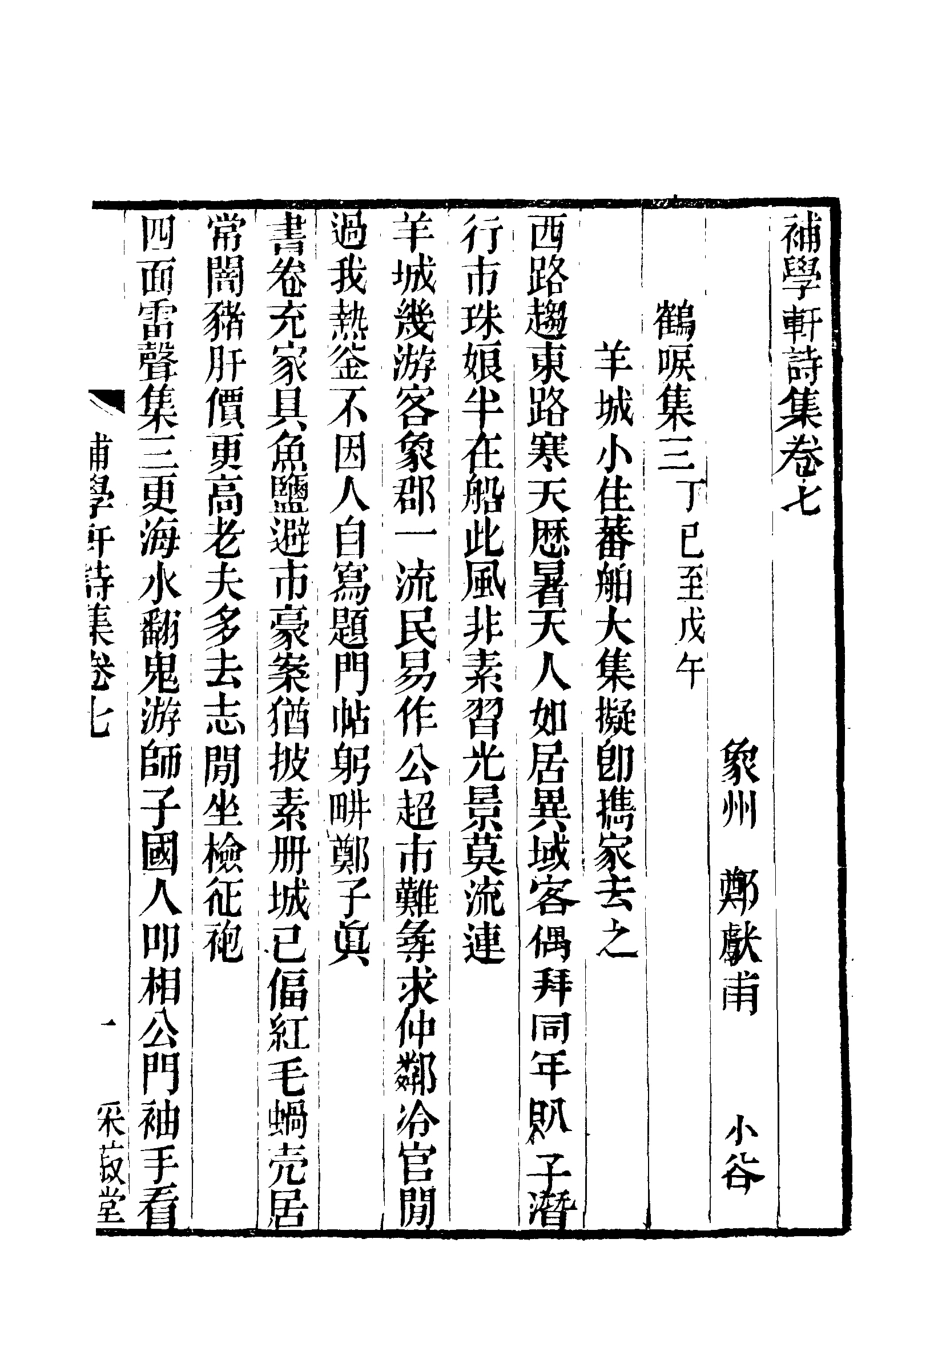 補學軒詩集卷七
象州 鄭献甫 小谷
鶴唳集三丁巳至戊午
羊城小住蕃舶大集擬卽擕家去之
西路趨東路寒天歷暑天人如居異域客偶拜同年子潛
行市珠娘半在船此風非素習光景莫流連
羊城幾游客象郡一流民易作公超市難尋求仲鄰冷官閒
過我熱釜不因人自寫題門帖躬畊鄭子眞
書卷充家具魚鹽避市豪案猶披素册城已偪紅毛蝸壳居
常闇豬肝價更高老夫多去志閒坐檢征袍
四面雷聲集三更海水翻鬼游師子國人叩相公門袖手看
補學軒詩集卷七 一 采菽堂